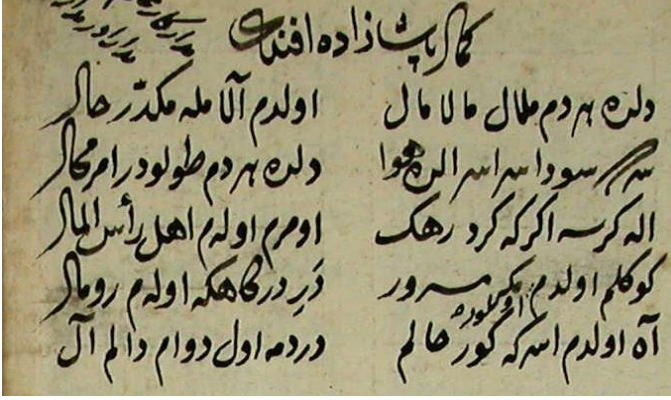 كمال پاشا زاده افندی
دلده هر دم ملال مالا مال اولدم آلامله مكدّر حال
سودا سر اسر هوا دلده هر دم طولودر امر محال
اله كرسه اكر كه كرد رهك اومرم اولهم اهل رأس المال
كوكلم اولدم مسرور دَرِ دركاهكه اولهم رومال
آه اولدم اسركه كور حالم دردمه اول دوام دالم آل